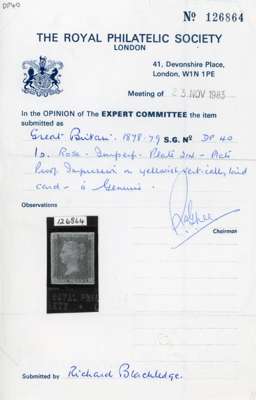 DP40
Nº 126864
THE ROYAL PHILATELIC SOCIETY
LONDON
41, Devonshire Place,
London, W1N 1PE
Meeting of 23 NOV 1983
In the OPINION of The EXPERT COMMITTEE the item
submitted as
Great Britain. 1878-79 S.G. Nº DP 40
1d. Rose - Imperf - Plate
Proof Impression on yellowish vertically laid
card - is Genuine.
Chairman
Observations
126864
ROYAL PHIL
Submitted by Richard Blackledge.